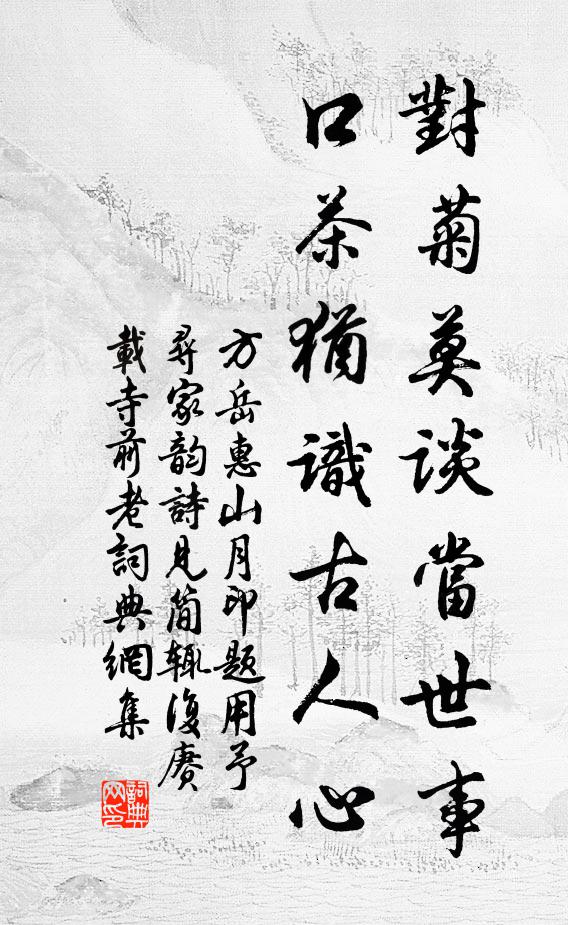 對菊莫談當世事
口茶猶識古人心
方岳惠山月印題用予
尋家韵詩見簡輒復賡
載寺前老詞典網集
詞典网印